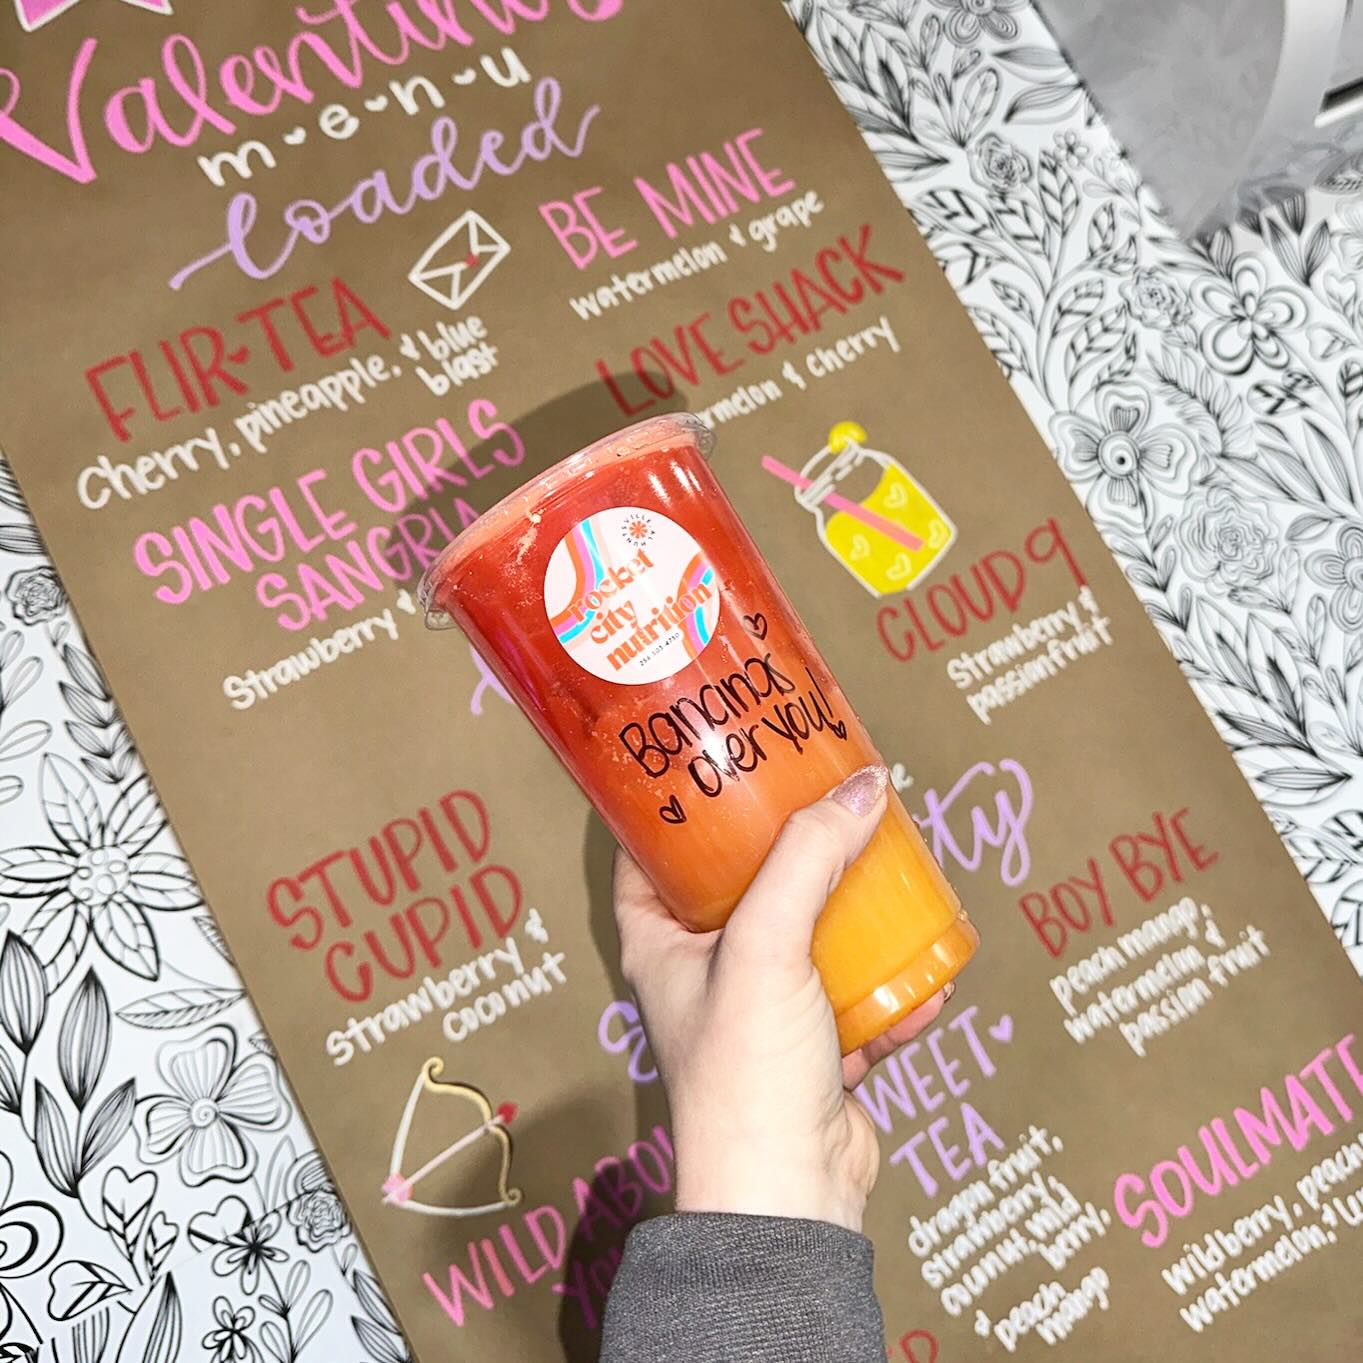 Valentine
m·e·n·u
Loaded
FLIR·TEA
cherry, pineapple, & blue
blast
BE MINE
watermelon & grape
LOVE SHACK
& cherry
SINGLE GIRLS
SANGRIA
Strawberry &
CLOUD 9
Strawberry &
passionfruit
HUNTSVILLE
rocket
city
nutrition
256·503·4750
Bananas
over you!
STUPID
CUPID
strawberry &
coconut
BOY BYE
peach mango,
watermelon, &
passion fruit
WILD ABOU
YOU
WEET
TEA
dragon fruit,
strawberry,
berry,
& peach
mango
SOULMATE
wildberry, peach
watermelon, &